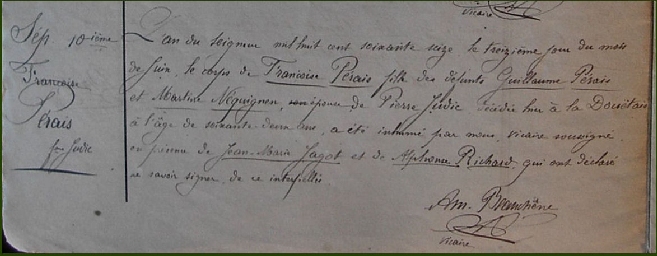 Vicaire
Sép 10ième
Francoise
Pérais
fme Judic
L'an du Seigneur mil huit cent soixante seize le treizième jour du mois
de Juin, le corps de Francoise Pérais fille des défunts Guillaume Pérais
et Martine Néquignon, son épouse de Pierre Judic décédée hier à la Douettais
à l'âge de soixante deux ans, a été inhumé par nous, vicaire soussigné
en présence de Jean-Marie Jagot et de Alphonse Richard qui ont déclaré
ne savoir signer, de ce interpellés
Am.
Vicaire